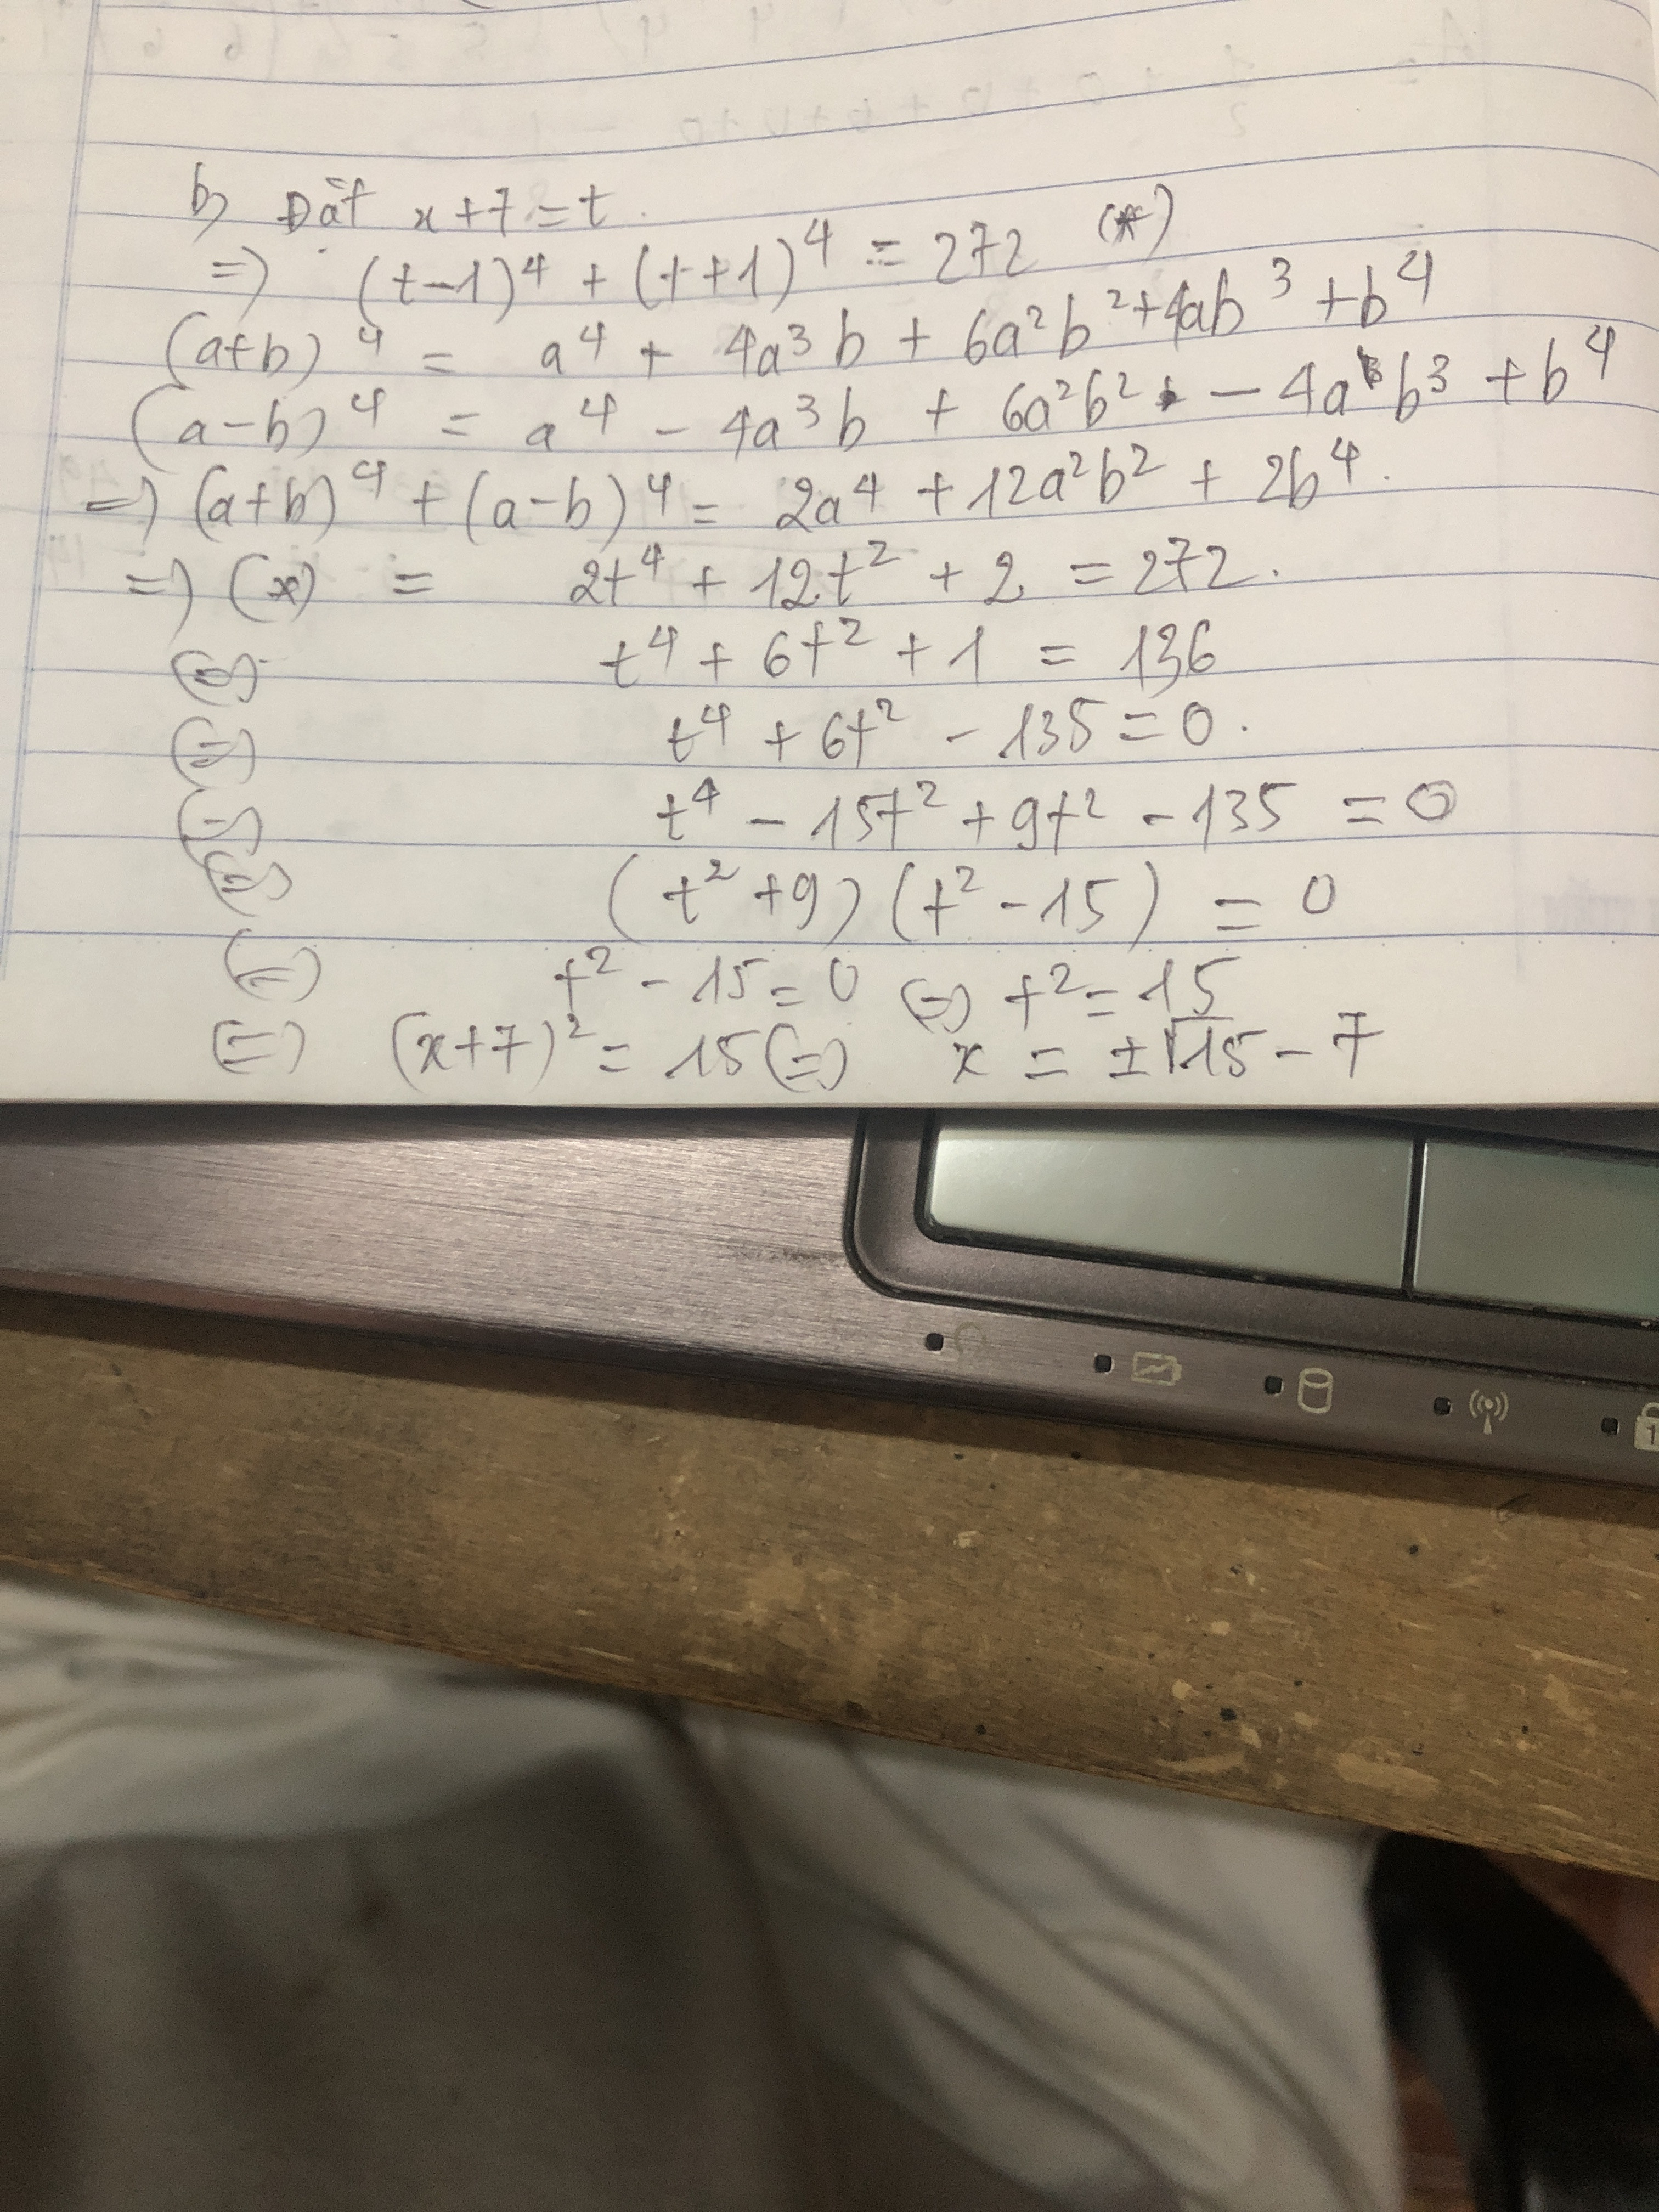 b) Đặt x+7 = t.
=> (t-1)⁴ + (t+1)⁴ = 272 (*)
(a+b)⁴ = a⁴ + 4a³b + 6a²b² + 4ab³ + b⁴
(a-b)⁴ = a⁴ - 4a³b + 6a²b² - 4ab³ + b⁴
=> (a+b)⁴ + (a-b)⁴ = 2a⁴ + 12a²b² + 2b⁴.
=> (*) = 2t⁴ + 12t² + 2 = 272.
(=) t⁴ + 6t² + 1 = 136
(=) t⁴ + 6t² - 135 = 0.
(=) t⁴ - 15t² + 9t² - 135 = 0
(=) (t² + 9) (t² - 15) = 0
(=) t² - 15 = 0 (=) t² = 15
(=) (x+7)² = 15 (=) x = ±√15 - 7